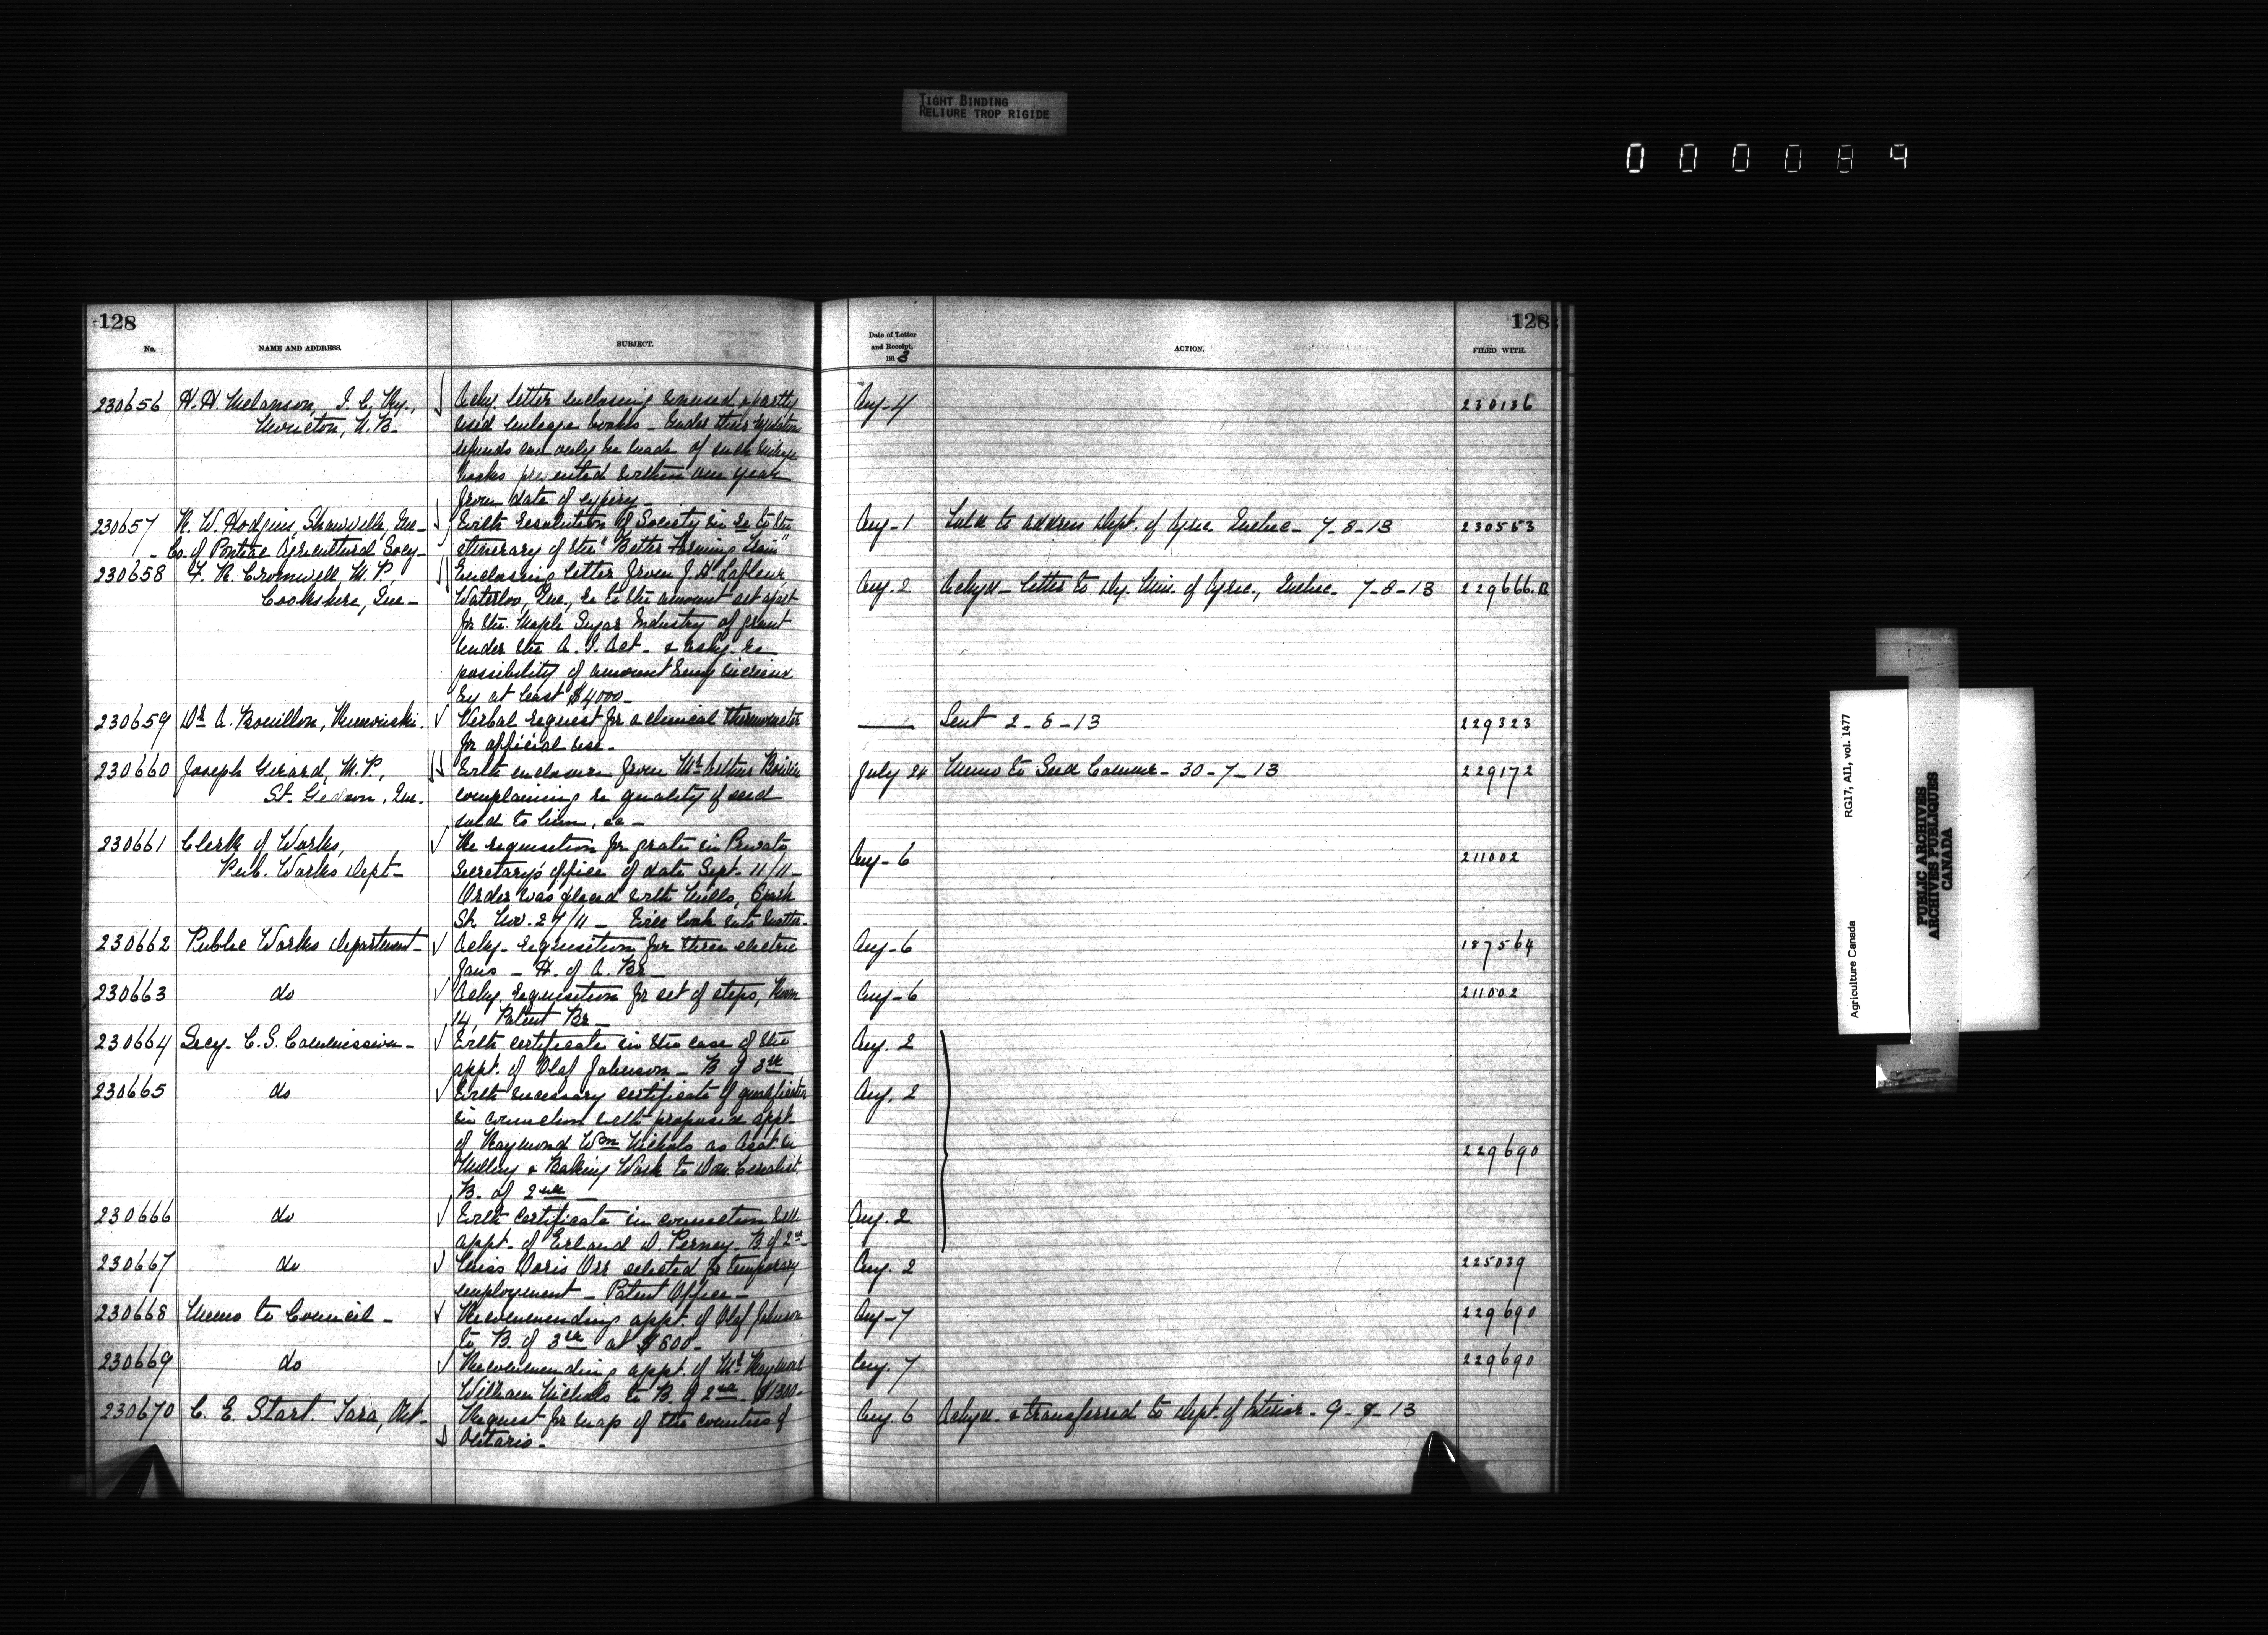 TIGHT BINDING
RELIURE TROP RIGIDE
000089
128
No.
NAME AND ADDRESS.
SUBJECT.
230656 H. H. Melanson, I. C. Ry.,
Moncton, N. B.
Ackg letter enclosing unused & partly
used mileage books - Under their regulations
refunds can only be made of such mileage
books presented within one year
from date of expiry -
230657 R. W. Hodgins, Shawville, Que -
- Co. of Pontiac Agricultural Socy -
With resolution of Society in re to the
itinerary of the "Better Farming Train"
230658 F. R. Cromwell M. P.,
Cookshire, Que -
Enclosing letter from J. H. Lafleur,
Waterloo, Que., re to the amount set apart
for the Maple Sugar Industry of grant
under the A. I. Act - & askg re
possibility of amount being
by at least $4000 -
230659 Dr A. Bouillon, Rimouski.
Verbal request for a clinical thermometer
for official use -
230660 Joseph Girard, M. P.,
St. Gedeon, Que.
With enclosure from Mr Arthur
complaining re quality of seed
sold to him, &c -
230661 Clerk of Works,
Pub. Works Dept -
Re requisition for grate in Private
Secretary's office of date Sept. 11/11 -
Order was placed with Mills, Spark
St. Nov. 27/11 - Will look into matter -
230662 Public Works Department -
Ackg - requisition for three electric
fans - H. of A. Br -
230663 do
Ackg. requisition for set of steps, Room
14, Patent Br -
230664 Secy - C. S. Commission -
With certificate in the case of the
appt. of Olof Johnson - B of 3rd
230665 do
With necessary certificate of qualification
in connection with proposed appt.
of Raymond Wm Nichols as Asst in
Milling & Baking Work to Dom. Cerealist.
B. of 2nd -
230666 do
With certificate in connection with
appt. of Erland D. Perney B of 2nd -
230667 do
Miss Doris Orr selected for temporary
employment - Patent Office -
230668 Memo to Council -
Recommending appt. of Olof Johnson
to B. of 3rd at $800 -
230669 do
Recommending appt. of Mr Raymond
William Nichols to B of 2nd - $1300 -
230670 C. E. Start. Tara, Ont -
Request for map of the counties of
Ontario -
128
Date of Letter
and Receipt,
191 3
ACTION.
FILED WITH.
Aug - 4 230136
Aug - 1 Told to address Dept. of Agric. Quebec - 7 - 8 - 13 230553
Aug. 2 Ackgd - letter to Dy. Min. of Agric., Quebec - 7 - 8 - 13 229666. B
Sent 2 - 8 - 13 229323
July 24 Memo to Seed Commr - 30 - 7 - 13 229172
Aug - 6 211002
Aug - 6 187564
Aug - 6 211002
Aug. 2
Aug. 2
229690
Aug. 2
Aug. 2 225039
Aug - 7 229690
Aug. 7 229690
Aug. 6 Ackgd - & transferred to Dept. of Interior - 9 - 8 - 13
Agriculture Canada RG17, AII, vol. 1477
PUBLIC ARCHIVES
ARCHIVES PUBLIQUES
CANADA